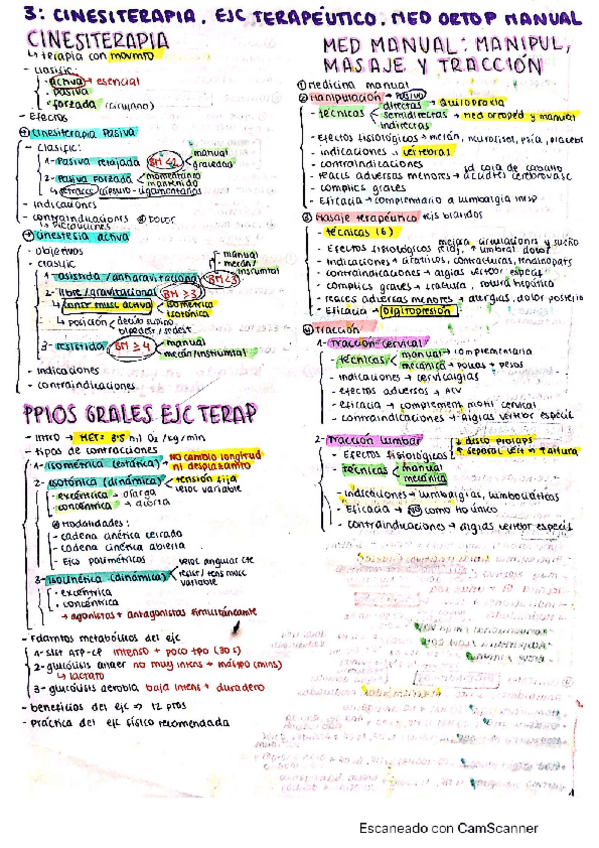 3: CINESITERAPIA. EJC TERAPEÚTICO. MED ORTOP MANUAL
CINESITERAPIA
↳ terapia con movmto
- clasific:
- activa → esencial
- pasiva
- forzada (cirujano)
- Efectos
① Cinesiterapia Pasiva
- clasific:
1- Pasiva relajada BM<2 manual
gravedad
2- Pasiva Forzada momentánea
mantenida
- indicaciones
- contraindicaciones dolor
② Cinestesia activa
- objetivos
- clasific
- manual
- mecán/
instrumtal
1- asistida /antigravitacional BM<3
2- libre/gravitacional BM ≥3
↳ contr musc activa isométrica
isotónica
↳ posición decúb supino
3- resistida BM ≥ 4 manual
mecán/instrumtal
- indicaciones
- contraindicaciones
PPIOS GRALES EJC TERAP
- intro → MET= 3.5 ml O2/kg/min
- tipos de contracciones
1- isométrica (estática) → NO cambio longitud
ni desplazamto
2- isotónica (dinámica) tensión fija
veloc variable
- excéntrica → alarga
- concéntrica → acorta
Modalidades:
- cadena cinética cerrada
- cadena cinética abierta
- Ejcs polimétricos
3- Isocinética (dinámica) veloc angular cte
resist/tens musc
variable
- excéntrica
- concéntrica
→ agonistas + antagonistas simultáneamte
- Fdamtos metabólicos del ejc
1- sist ATP-CP intenso + poco tpo (30s)
2- glucólisis anaer no muy intens + más tpo (mins)
↳ lactato
3- glucólisis aerobia baja intens + duradero
- beneficios del ejc ⇒ 12 ptos
- práctica del ejc físico recomendada
MED MANUAL: MANIPUL,
MASAJE Y TRACCIÓN
① Medicina manual
② Manipulación → PASIVO
- técnicas directas → Quiropraxia
semidirectas → med ortopéd y manual
indirectas
- efectos fisiológicos → mecán, neurofisiol, psia, placebo
- indicaciones → vértebras
- contraindicaciones
- reaccs adversas menores
- complics graves → accidtes cerebrovasc
- Eficacia → complementario a lumbalgia inesp
③ Masaje terapéutico tejs blandos
- técnicas (6)
- Efectos fisiológicos mejora circulaciones y sueño
relaj, ↑ umbral dolor
- indicaciones → contracturas, tendinopats
- contraindicaciones → algias vértebr especif
- complics graves → fractura, rotura hepática
- reaccs adversas menores → alergias, dolor posterio
- Eficacia → Digitopresión
④ Tracción
1- Tracción cervical
- técnicas manual → complementaria
mecánica → poleas + pesos
- indicaciones → cervicalgias
- efectos adversos → ACV
- eficacia → complement motil cervical
- contraindicaciones → algias vértebr especif
2- Tracción lumbar
- Efectos fisiológicos ↓ disco prolaps
↑ separac vért → ↑ altura
- técnicas manual
mecánica
- indicaciones → lumbalgias, lumbociáticas
- Eficacia → NO como tto único
- contraindicaciones → algias vértebr especif
1
Escaneado con CamScanner